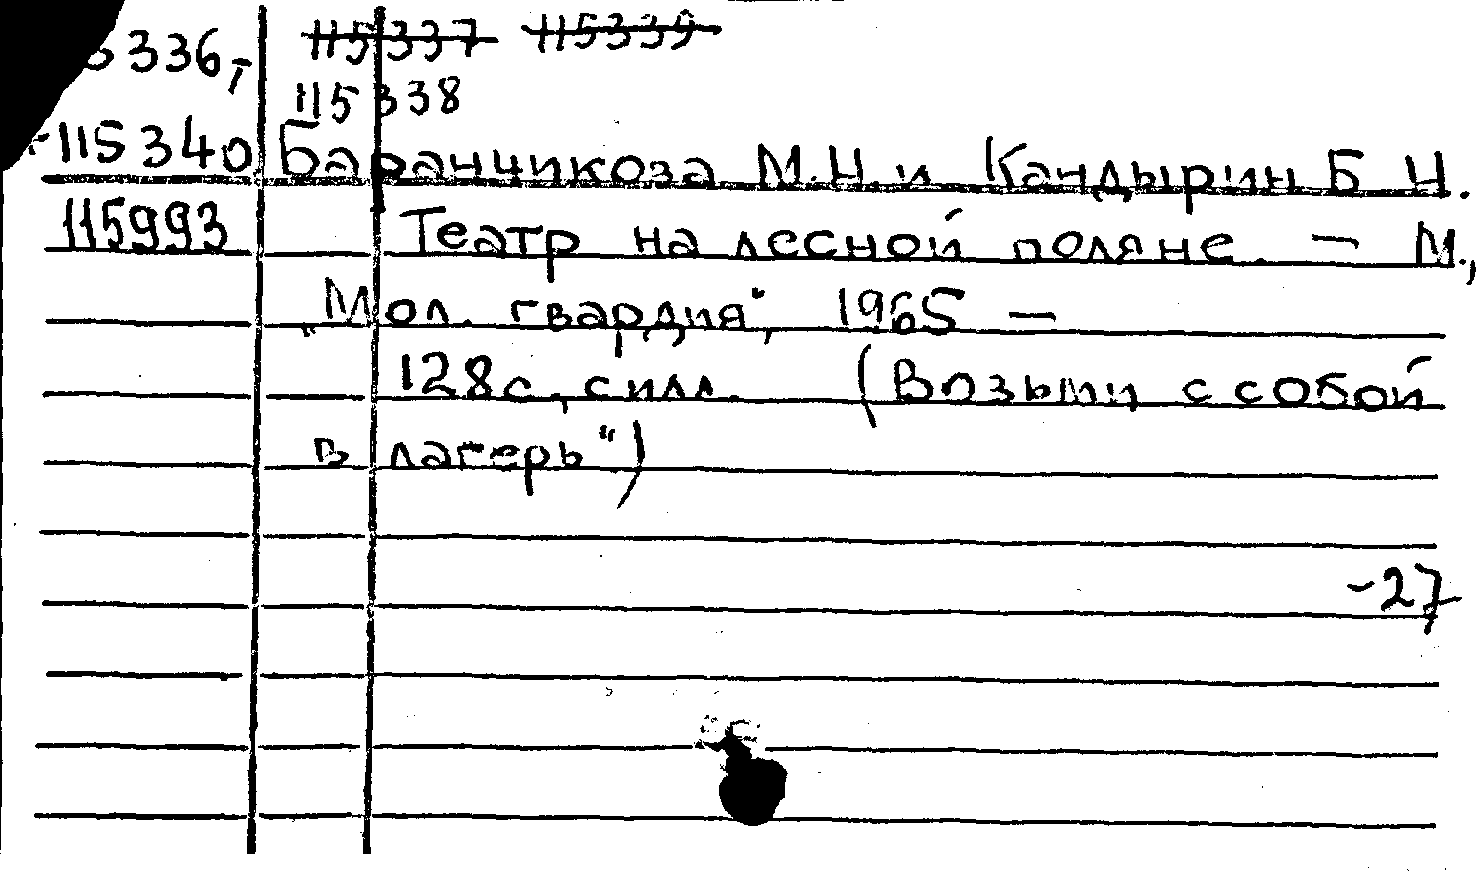 5336, ~~115337~~ ~~115339~~
115338
115340 Баранчикова М.Н. и Кандырин Б Н.
115993 Театр на лесной поляне. — М.,
„Мол. гвардия", 1965 —
128с., с илл. (Возьми с собой
в лагерь")
-27